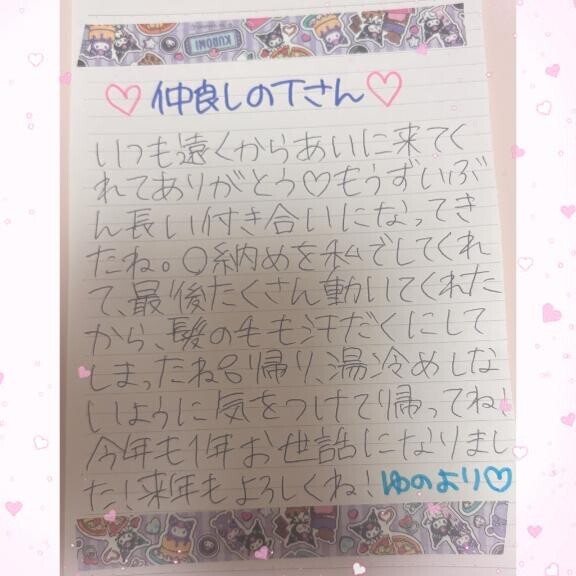 KUROMI
仲良しのTさん
いつも遠くからあいに来てく
れてありがとう♡もうずいぶ
ん長い付き合いになってき
たね。〇納めを私でしてくれ
て、最後たくさん動いてくれた
から、髪の毛も汗だくにして
しまったね 帰り、湯冷めしな
いように気をつけて帰ってね!
今年も1年お世話になりまし
た!来年もよろしくね! ゆのより♡